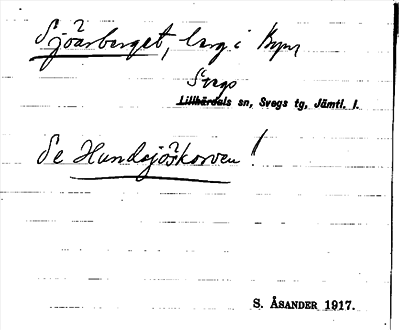 Sjöarberget, berg i Byn,
Svegs
Lillhärdals sn, Svegs tg, Jämtl. l.
Se Hundsjöskorven!
S. ÅSANDER 1917.